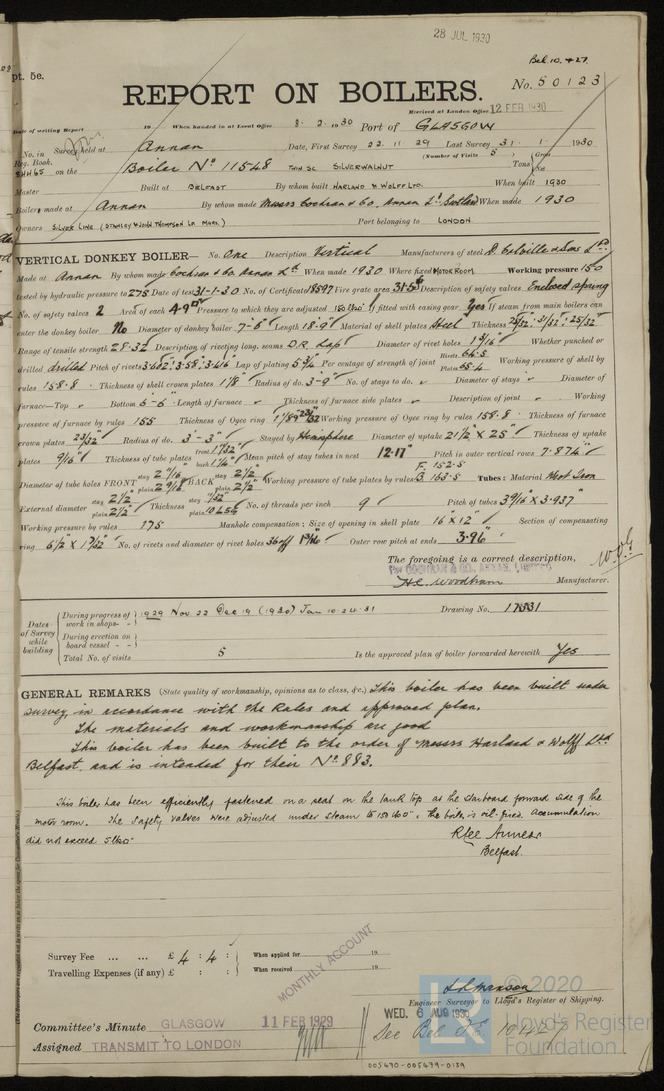 28 JUL 1930
Bel. 10. 427.
pt. 5e.
REPORT ON BOILERS.
No. 50123
Received at London Office 12 FEB 1930
Date of writing Report 19 When handed in at Local Office 8. 2. 1930 Port of GLASGOW
No. in Reg. Book. Survey held at Annan Date, First Survey 22. 11 29 Last Survey 31. 1. 1930
(Number of Visits 5) Gross
on the Boiler No 11548 TWIN SC SILVERWALNUT Tons Net
Master Built at BELFAST By whom built HARLAND & WOLFF LTD. When built 1930
Boilers made at Annan By whom made Messrs Cochran & Co, Annan Ld Scotland When made 1930
Owners SILVER LINE (STANLEY & JOHN THOMPSON LD MGRS.) Port belonging to LONDON
VERTICAL DONKEY BOILER— No. One Description Vertical Manufacturers of steel D. Colville & Sons Ltd
Made at Annan By whom made Cochran & Co. Annan Ld When made 1930 Where fixed MOTOR ROOM Working pressure 150
tested by hydraulic pressure to 275 Date of test 31-1-30 No. of Certificate 18597 Fire grate area 31.5 Description of safety valves Enclosed spring
No. of safety valves 2 Area of each 4.9 Pressure to which they are adjusted 150 If fitted with easing gear Yes If steam from main boilers can
enter the donkey boiler No Diameter of donkey boiler 7-6" Length 18-9" Material of shell plates Steel Thickness 25/32" : 31/32" : 25/32"
Range of tensile strength 28-32 Description of riveting long. seams D.R. Lap Diameter of rivet holes 1 3/16" Whether punched or
drilled drilled Pitch of rivets 3.602": 3.58": 3.416" Lap of plating 5 3/4 Per centage of strength of joint Rivets 64.5 Plates 65.4 Working pressure of shell by
rules 158.8 Thickness of shell crown plates 1 1/8" Radius of do. 3'-9" No. of stays to do. Diameter of stays Diameter of
furnace—Top Bottom 6-6" Length of furnace Thickness of furnace side plates Description of joint Working
pressure of furnace by rules 155 Thickness of Ogee ring Working pressure of Ogee ring by rules 158.8 Thickness of furnace
crown plates 23/32" Radius of do. 3'-3" Stayed by Hemisphere Diameter of uptake 21 1/2" X 25" Thickness of uptake
plates 9/16" Thickness of tube plates front 1 7/32" back 1 1/4" Mean pitch of stay tubes in nest 12.17" Pitch in outer vertical rows 7.874"
Diameter of tube holes FRONT stay 2 11/16" plain 2 9/16" BACK stay 2 1/2" plain 2 1/2" Working pressure of tube plates by rules F. 152.5 B. 163.5 Tubes: Material Wrot Iron
External diameter stay 2 1/2" plain 2 1/2" Thickness stay 11/32" plain 10 LSG No. of threads per inch 9 Pitch of tubes 3 9/16" X 3.937"
Working pressure by rules 175 Manhole compensation: Size of opening in shell plate 16" X 12" Section of compensating
ring 6 1/2" X 1 9/32" No. of rivets and diameter of rivet holes 36 off 1 3/16" Outer row pitch at ends 3.96"
The foregoing is a correct description,
For COCHRAN & CO., ANNAN, LIMITED
H.C. Woodham Manufacturer.
Dates of Survey while building
During progress of work in shops - - 1929 Nov 22 Dec 19 (1930) Jan 10. 24. 31 Drawing No. 17531
During erection on board vessel - -
Total No. of visits 5 Is the approved plan of boiler forwarded herewith Yes
GENERAL REMARKS (State quality of workmanship, opinions as to class, &c.) This boiler has been built under
survey, in accordance with the Rules and approved plan.
The materials and workmanship are good
This boiler has been built to the order of Messrs Harland & Wolff Ltd
Belfast, and is intended for their No 883.
This boiler has been efficiently fastened on a seat on the tank top at the starboard forward side of the
motor room. The safety valves were adjusted under steam to 150 lbs. The boiler is oil-fired. Accumulation
did not exceed 5 lbs
Belfast.
Survey Fee ... ... £ 4 : 4 : When applied for 19
Travelling Expenses (if any) £ : : When received 19
MONTHLY ACCOUNT
Engineer Surveyor to Lloyd's Register of Shipping.
Committee's Minute GLASGOW 11 FEB 1929 WED. 6 AUG 1930
Assigned TRANSMIT TO LONDON See Bel. 10427
© 2020
LR Lloyd's Register
Foundation
005670-005679-0139